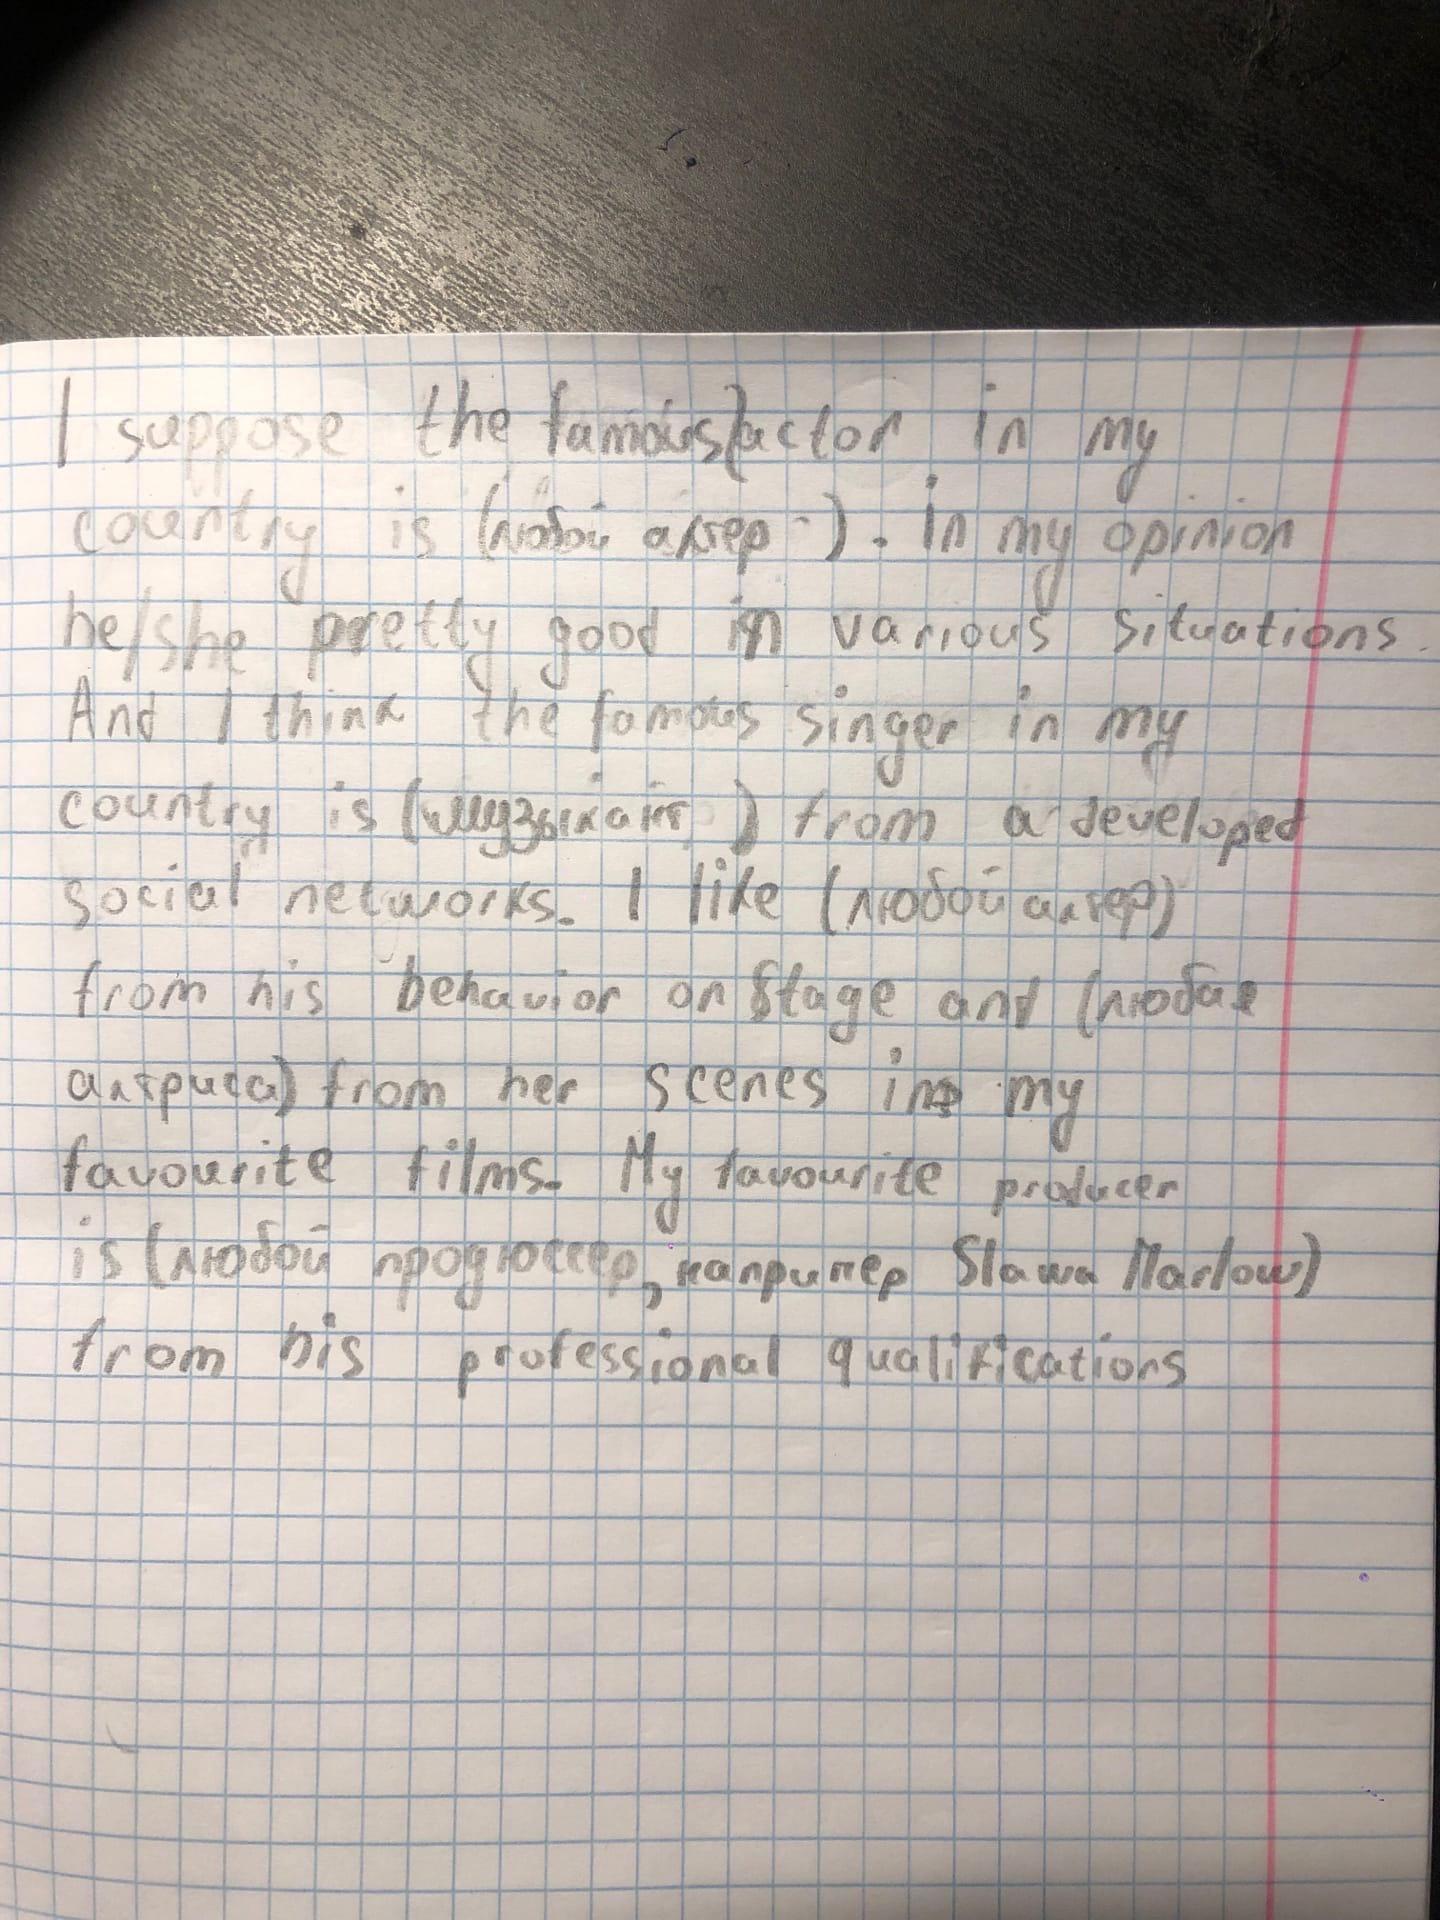 I suppose the famous actor in my
country is (любой актер). In my opinion
he/she pretty good in various situations.
And I think the famous singer in my
country is (музыкант) from a developed
social networks. I like (любой актер)
from his behavior on stage and (любая
актриса) from her scenes in my
favourite films. My favourite producer
is (любой продюссер, например Slawa Marlow)
from his professional qualifications